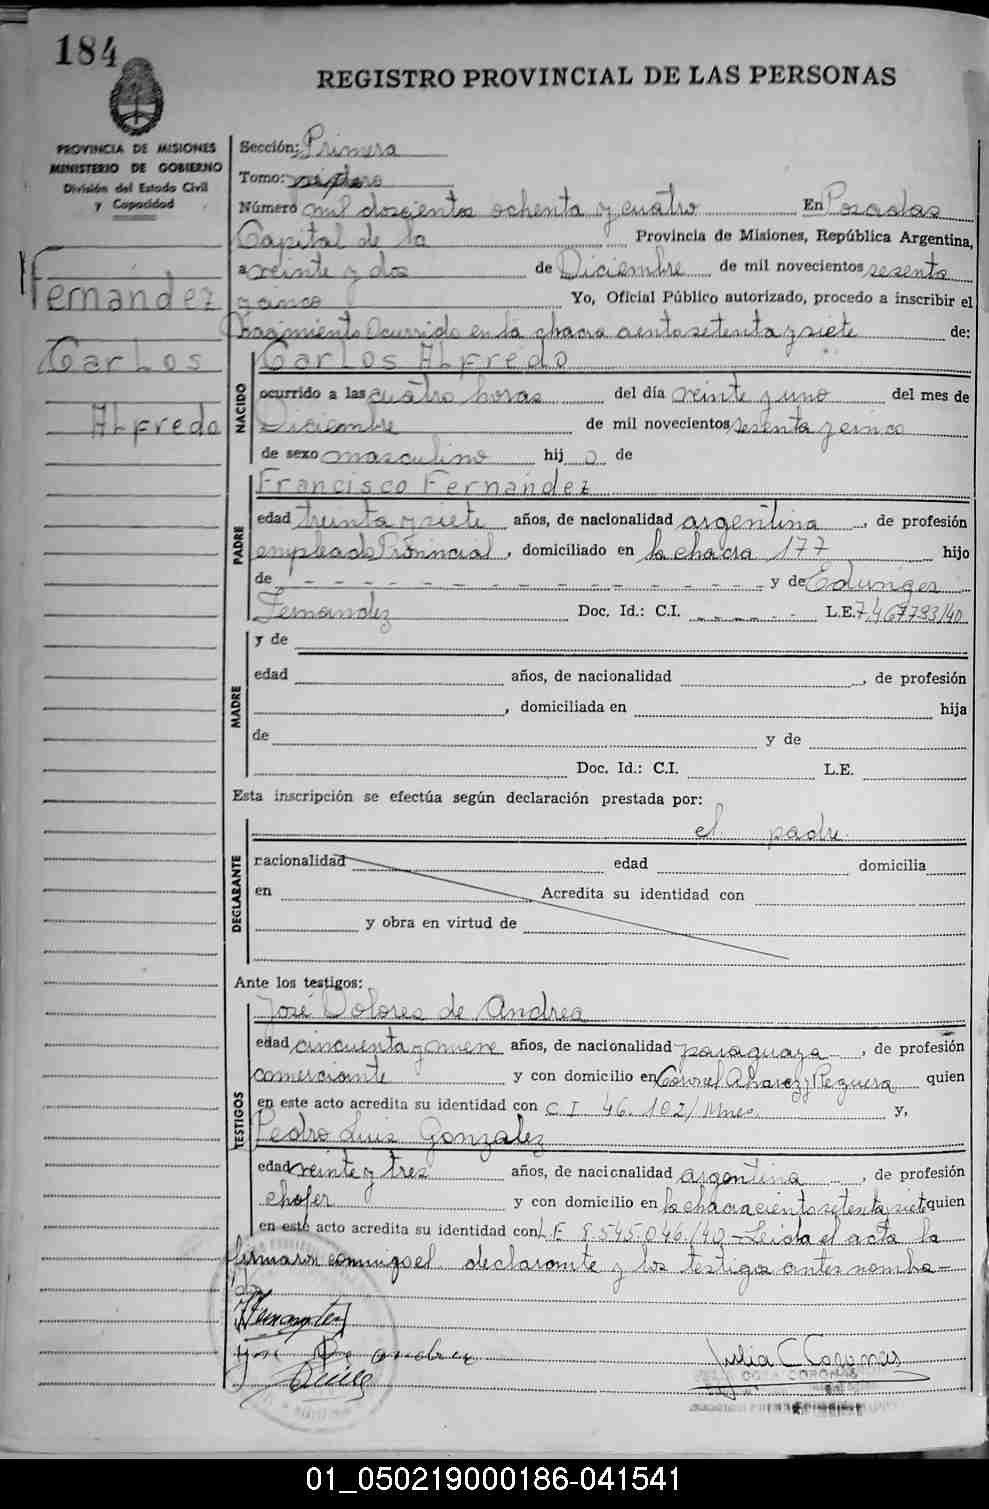 184
REGISTRO PROVINCIAL DE LAS PERSONAS
PROVINCIA DE MISIONES
MINISTERIO DE GOBIERNO
División del Estado Civil
y Capacidad
Fernández
Carlos
Alfredo
Sección: Primera
Tomo: séptimo
Número mil doscientos ochenta y cuatro En Posadas
Capital de la Provincia de Misiones, República Argentina,
a veinte y dos de Diciembre de mil novecientos sesenta
y cinco Yo, Oficial Público autorizado, procedo a inscribir el
Nacimiento Ocurrido en la chacra ciento setenta y siete de:
NACIDO
Carlos Alfredo
ocurrido a las cuatro horas del día veinte y uno del mes de
Diciembre de mil novecientos sesenta y cinco
de sexo masculino hij o de
PADRE
Francisco Fernández
edad treinta y siete años, de nacionalidad argentina, de profesión
empleado Provincial, domiciliado en la chacra 177 hijo
de - - - - - - - - - - - - - - - y de Eduviges
Fernandez Doc. Id.: C.I. - - - - - - L.E. 7.467793/40
MADRE
y de
edad años, de nacionalidad , de profesión
, domiciliada en hija
de y de
Doc. Id.: C.I. L.E.
Esta inscripción se efectúa según declaración prestada por:
DECLARANTE
el padre.
racionalidad edad domicilia
en . Acredita su identidad con
y obra en virtud de
Ante los testigos:
TESTIGOS
José Dolores de Andrea
edad cincuenta y nueve años, de nacionalidad paraguaya, de profesión
comerciante y con domicilio en Coronel Alvarez y Reguera quien
en este acto acredita su identidad con C.I 46.102/Mnes. y,
Pedro Luis González
edad veinte y tres años, de nacionalidad argentina, de profesión
chofer y con domicilio en la chacra ciento setenta y siete quien
en esté acto acredita su identidad con L.E 8.545.046/40 - Leida el acta la
firmaron conmigo el declarante y los testigos antes nombra-
dos
Fernandez
José D de Andrea
Julia C Coronas
01_050219000186-041541